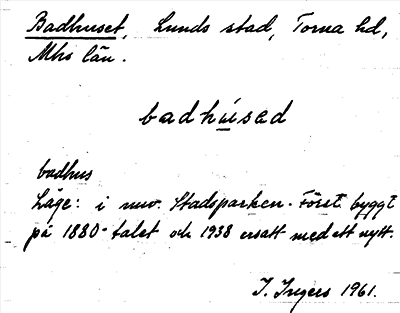 Badhuset, Lunds stad, Torna hd,
Mhs län.
badhúsad
badhus
Läge: i nuv. Stadsparken. Först byggt
på 1880-talet och 1938 ersatt med ett nytt.
I. Ingers 1961.